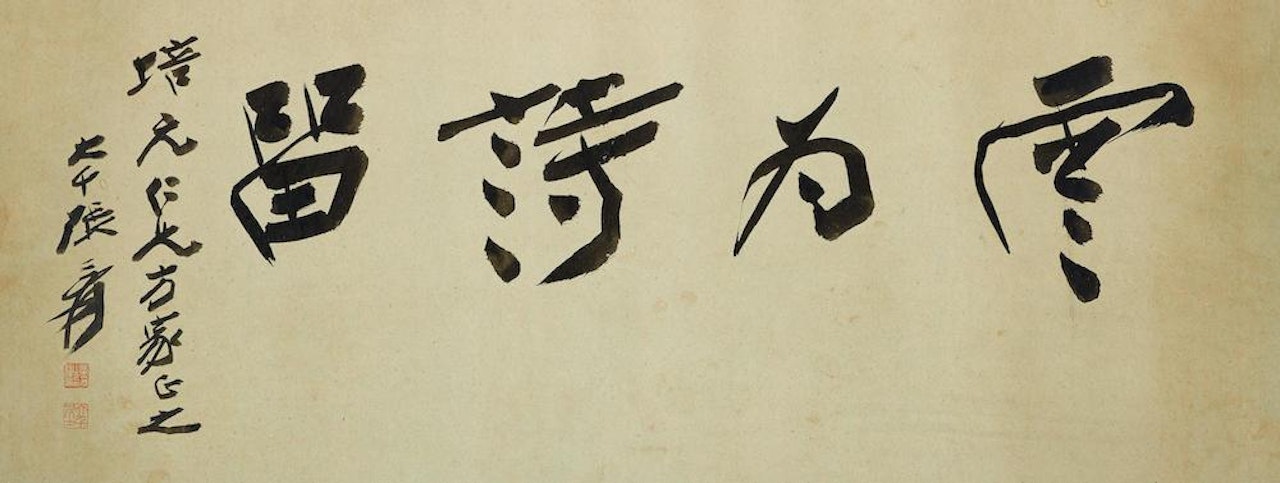 雲為詩留
培元仁兄方家正之
大千張爰